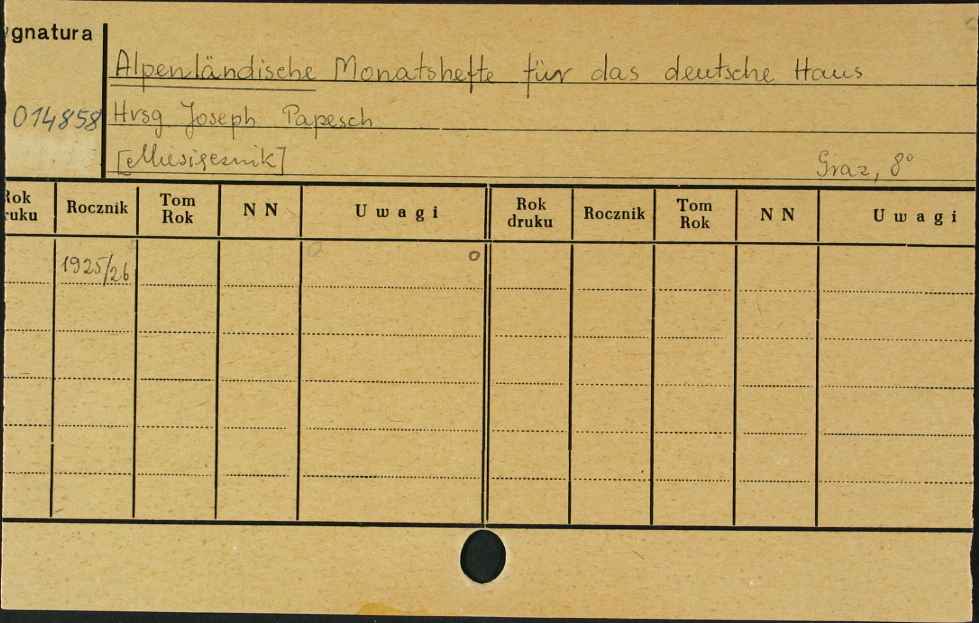 ygnatura
Alpenländische Monatshefte für das deutsche Haus
014858 Hrsg Joseph Papesch
[Miesięcznik] Graz, 8°
Rok druku Rocznik Tom Rok N N Uwagi Rok druku Rocznik Tom Rok N N Uwagi
1925/26